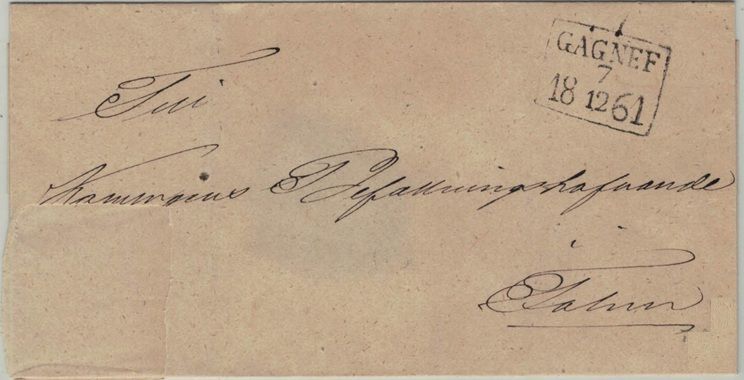 GAGNEF
7
18 12 61
Till
Konungens Befallningshafvande
i
Falun